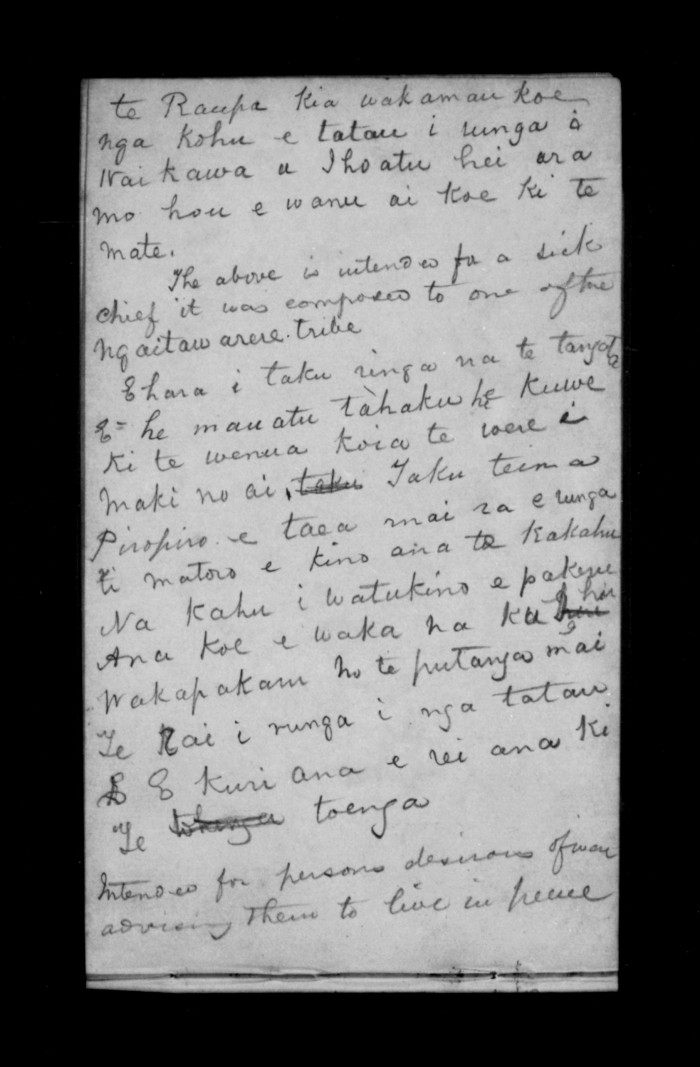 te Raupa kia wakamau koe
nga kohu e tatau i runga o
Waikawa a Ihoatu hei ara
mo hou e wanu ai koe ki te
mate.
The above is intended for a sick
chief it was composed to one of the
Ngaitawarere. tribe
Ehara i taku ringa na te tangata
E= he mauatu tàhaku he kuwe
ki te wenua koia te were i
maki no ai, taku Taku teina
Piropiro. e taea mai ra e runga
ti matoro e kino ana te kakahu
Na kahu i watukino e pakeue
Ana koe e waka na ku hu
Wakapakaru no te putanga mai
Te Rai i runga i nga tatau
E kuri ana e rei ana ki
Te toenga
Intended for persons desirous of war
advising them to live in peace